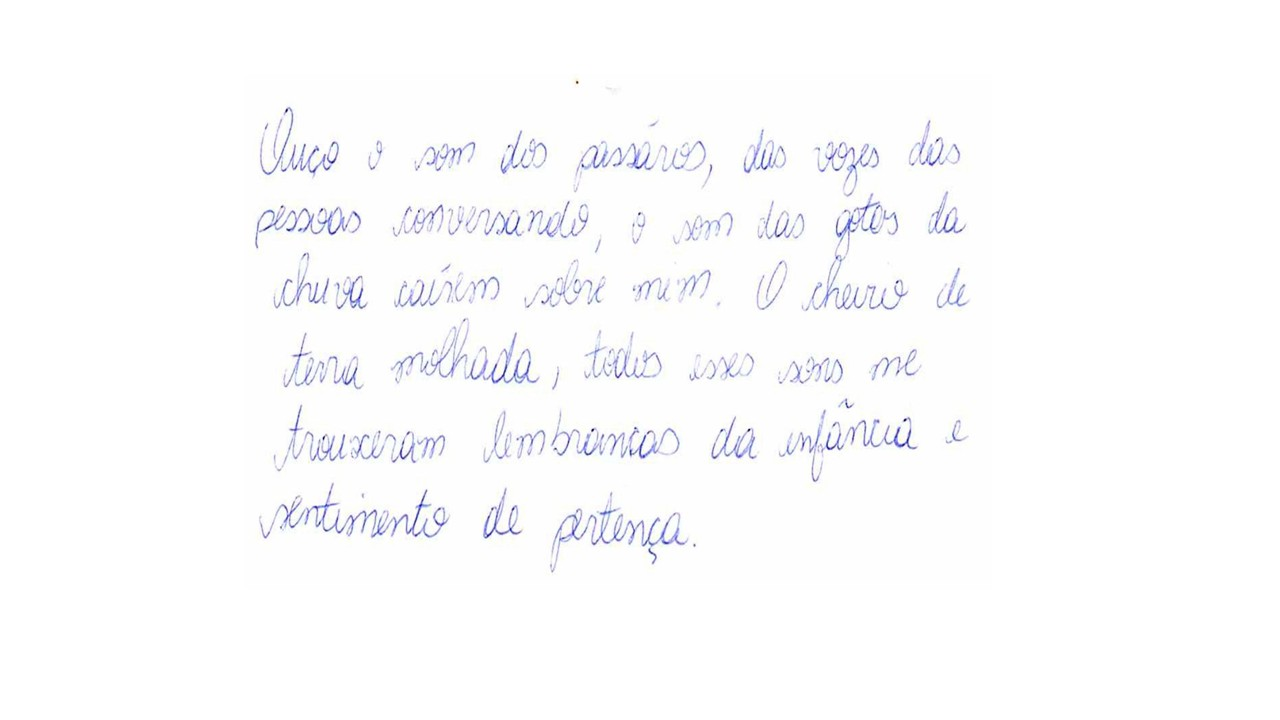 Ouço o som dos passáros, das vozes das
pessoas conversando, o som das gotas da
chuva caírem sobre mim. O cheiro de
terra molhada, todos esses sons me
trouxeram lembrancas da infância e
sentimento de pertença.